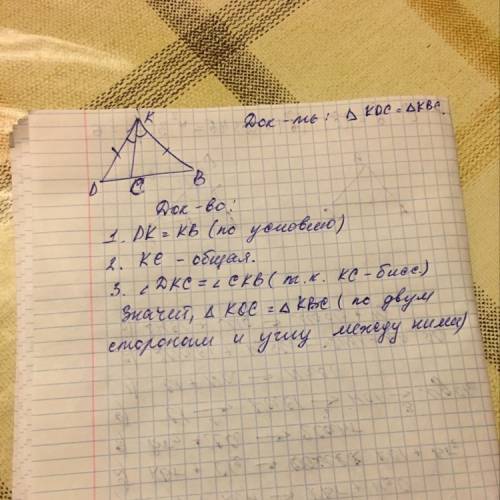 K
Док-ть: △ KDC = △KBC
D
C
B
Док-во:
1. DK = KB (по условию)
2. KC - общая.
3. ∠DKC = ∠CKB (т.к. KC - бисс)
Значит, △ KDC = △ KBC (по двум
сторонам и углу между ними)